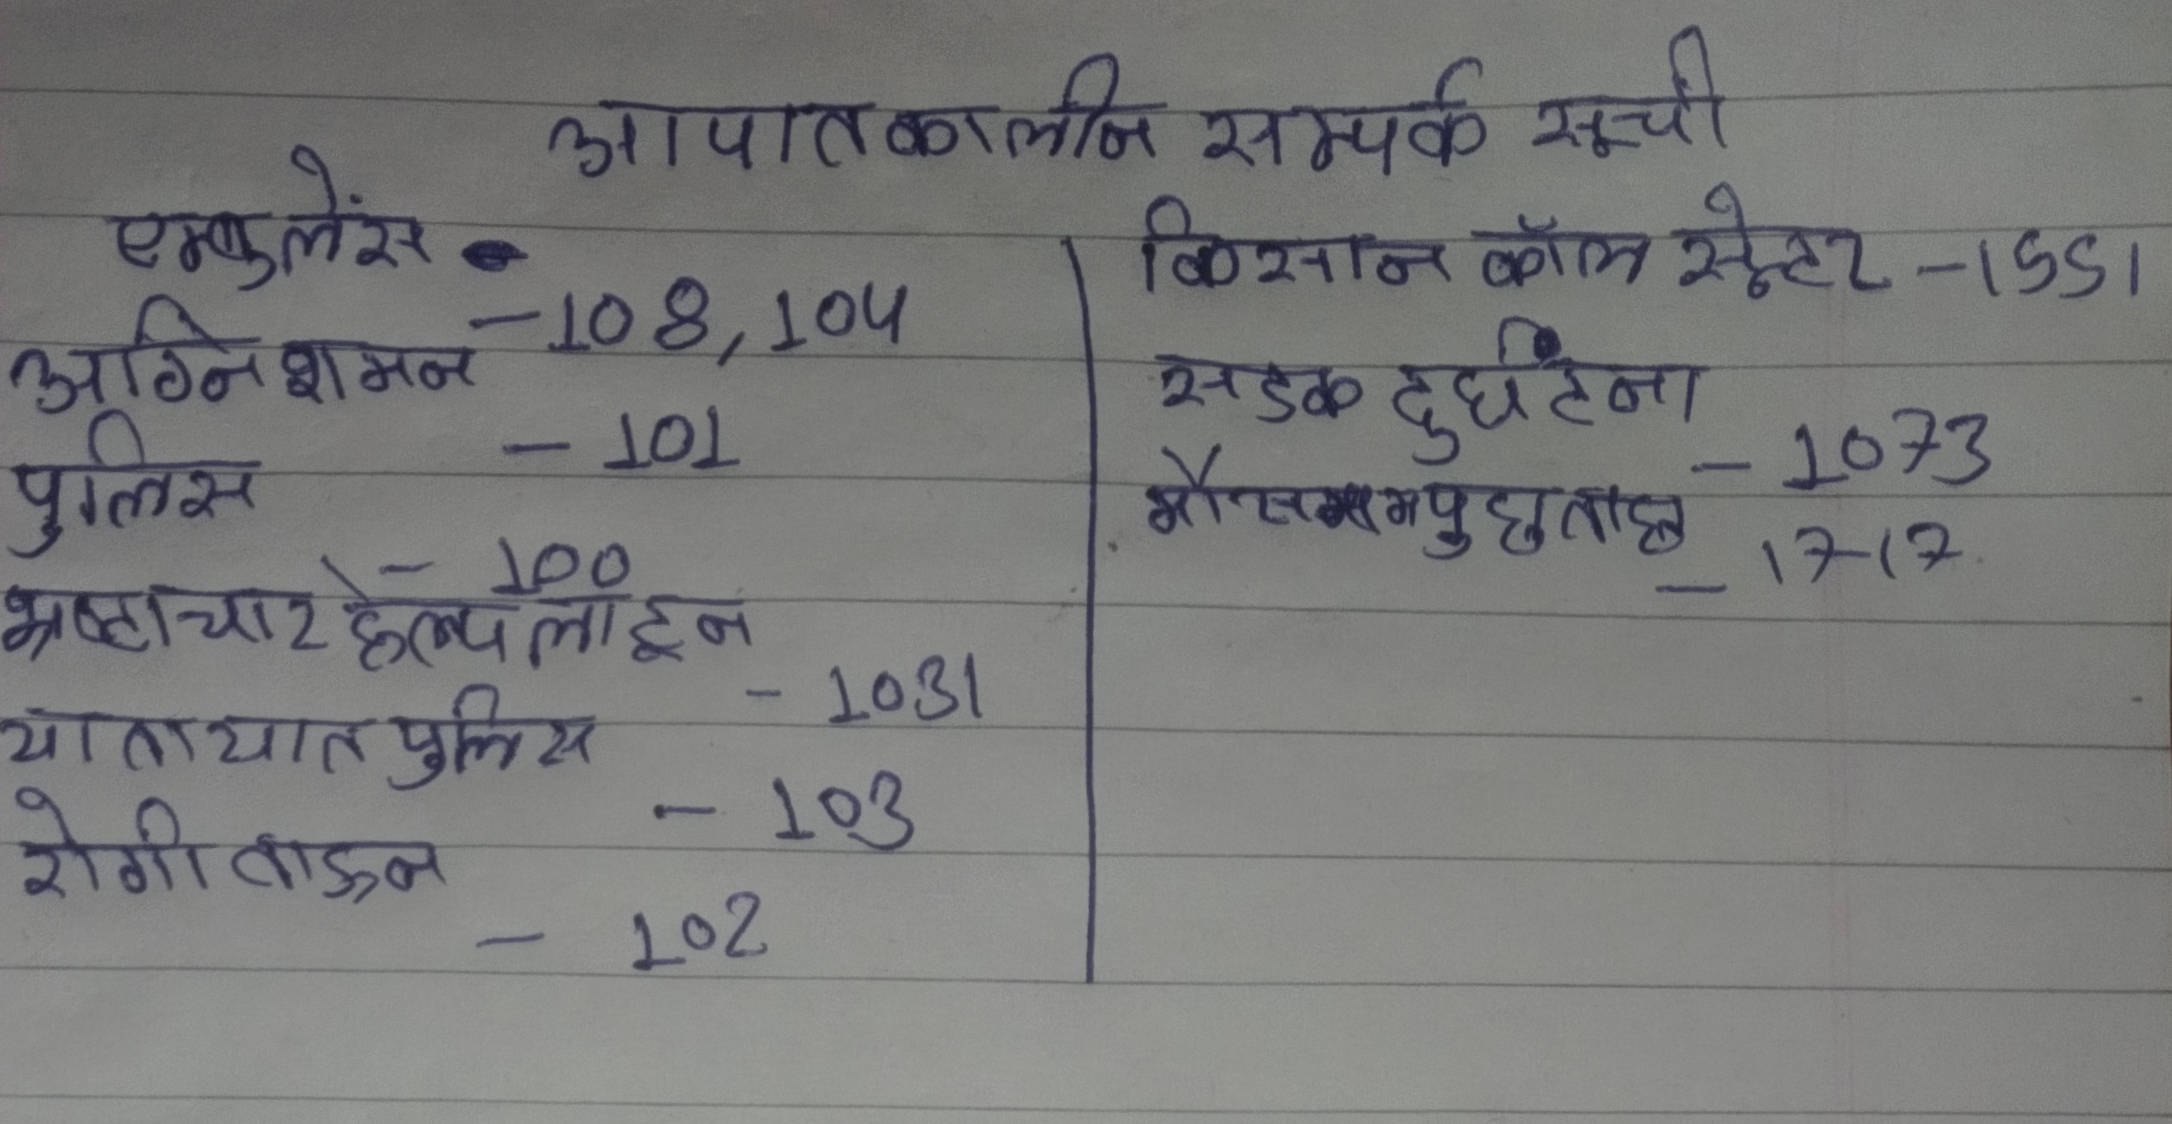 आपातकालीन सम्पर्क सूची
एम्बुलेंस
- 108, 104
अग्निशमन
- 101
पुलिस
- 100
भ्रष्टाचार हेल्पलाइन
- 1031
यातायात पुलिस
- 103
रोगी वाहन
- 102
किसान कॉल सेन्टर - 1551
सडक दुर्घटना
- 1073
मौसम पुछताछ
- 1717